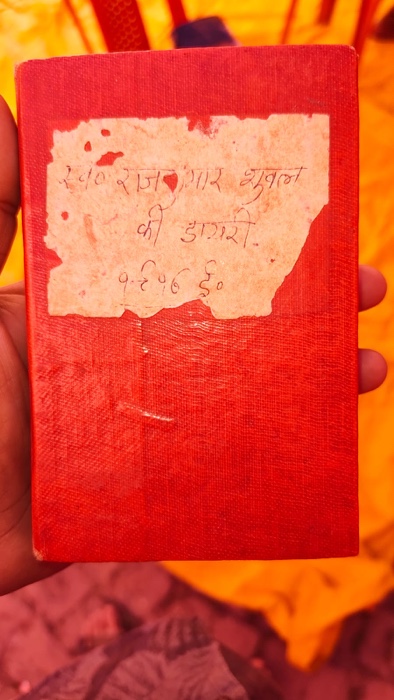 स्व० राजकुमार शुक्ल
की डायरी.
१९१७ ई०